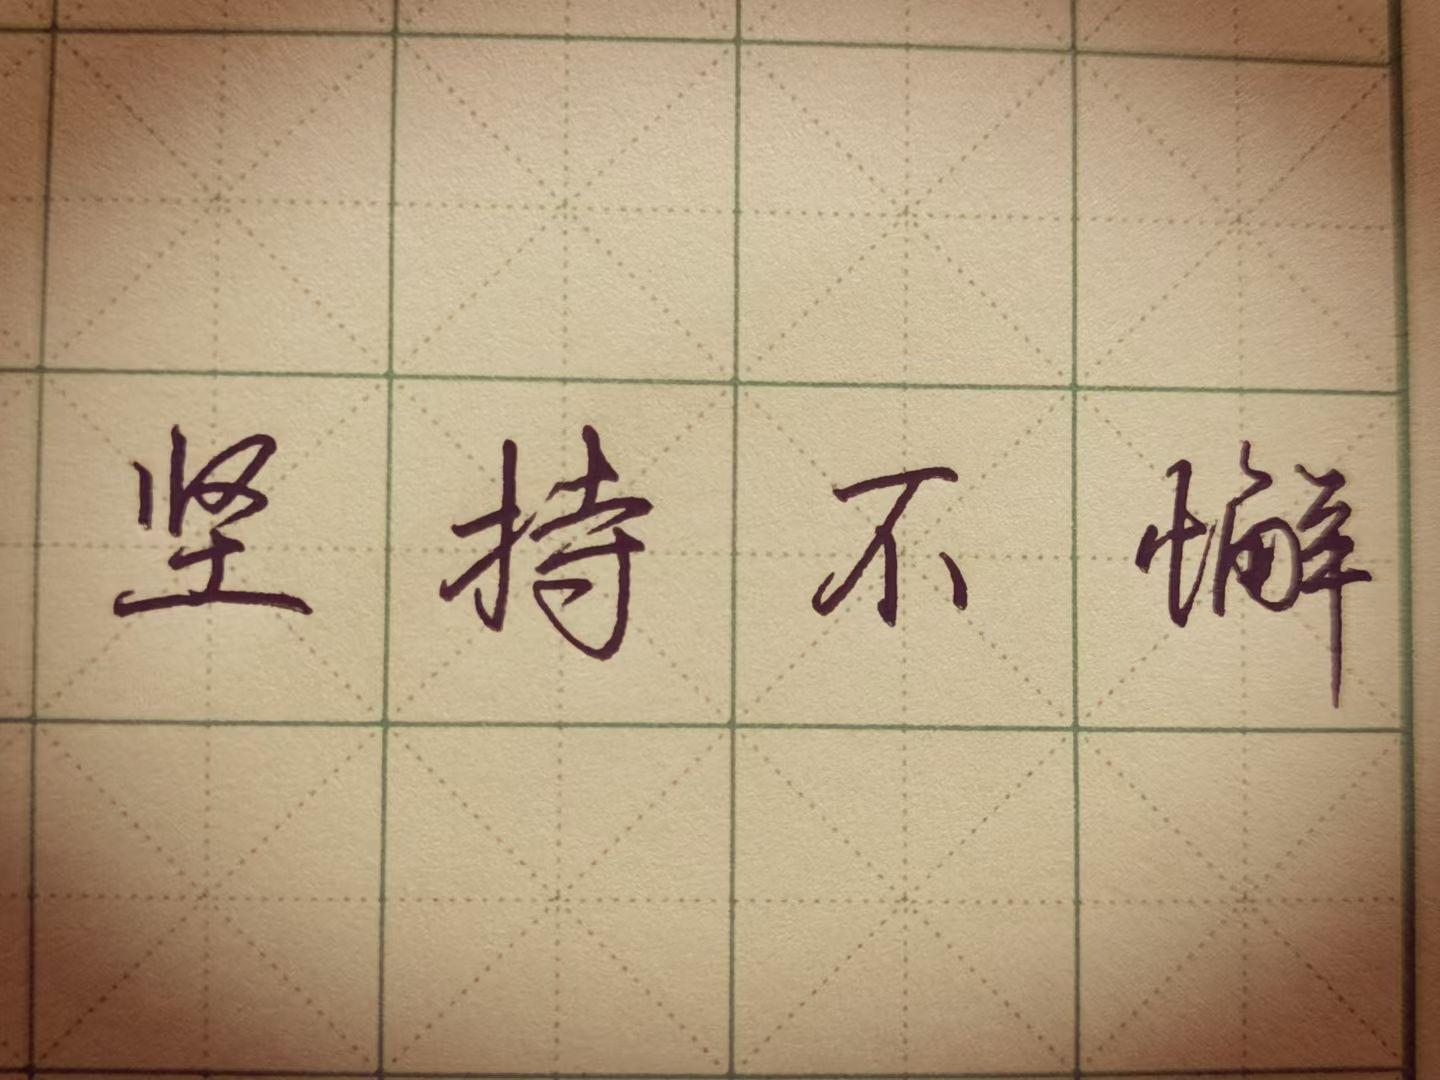 坚持不懈